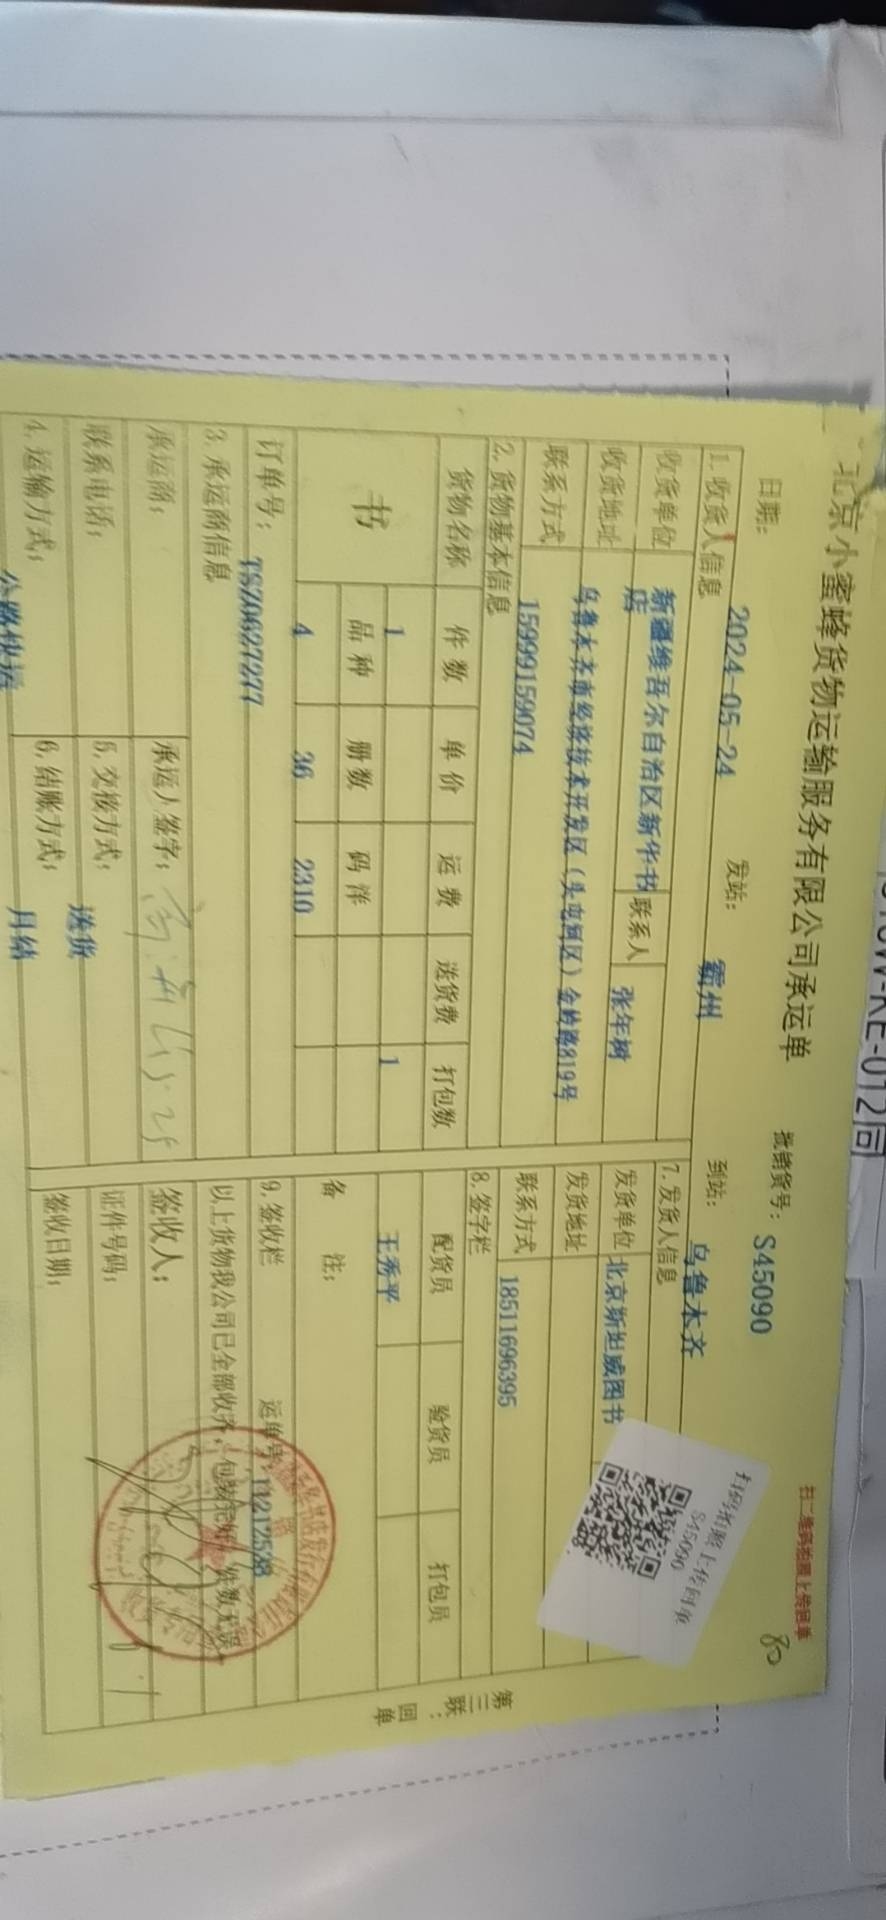 北京小蜜蜂货物运输服务有限公司承运单
扫二维码拍照上传回单
批销货号：S45090
80
日期：2024-05-24 发站：霸州 到站：乌鲁木齐
扫码拍照上传回单
S45090
1.收货人信息
收货单位 新疆维吾尔自治区新华书店 联系人 张年树
收货地址 乌鲁木齐市经济技术开发区（头屯河区）金岭路819号
联系方式 15999159074
2.货物基本信息
货物名称 件数 单价 运费 送货费 打包数
书 1 1
品种 册数 码洋
4 36 2310
订单号：TSZ0627277
3.承运商信息
承运商： 承运人签字：
联系电话： 5.交接方式：送货
4.运输方式：公路快运 6.结账方式：月结
7.发货人信息
发货单位 北京斯坦威图书
发货地址
联系方式 18511696395
8.签字栏
配货员 验货员 打包员
王秀平
备 注：
9.签收栏 运单号：11212538
以上货物我公司已全部收齐，包装完好，件数无误
签收人：
证件号码：
签收日期：
第三联：回单